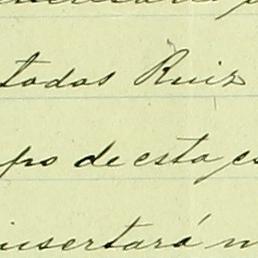 todos Ruiz
po de esta es
insertará n